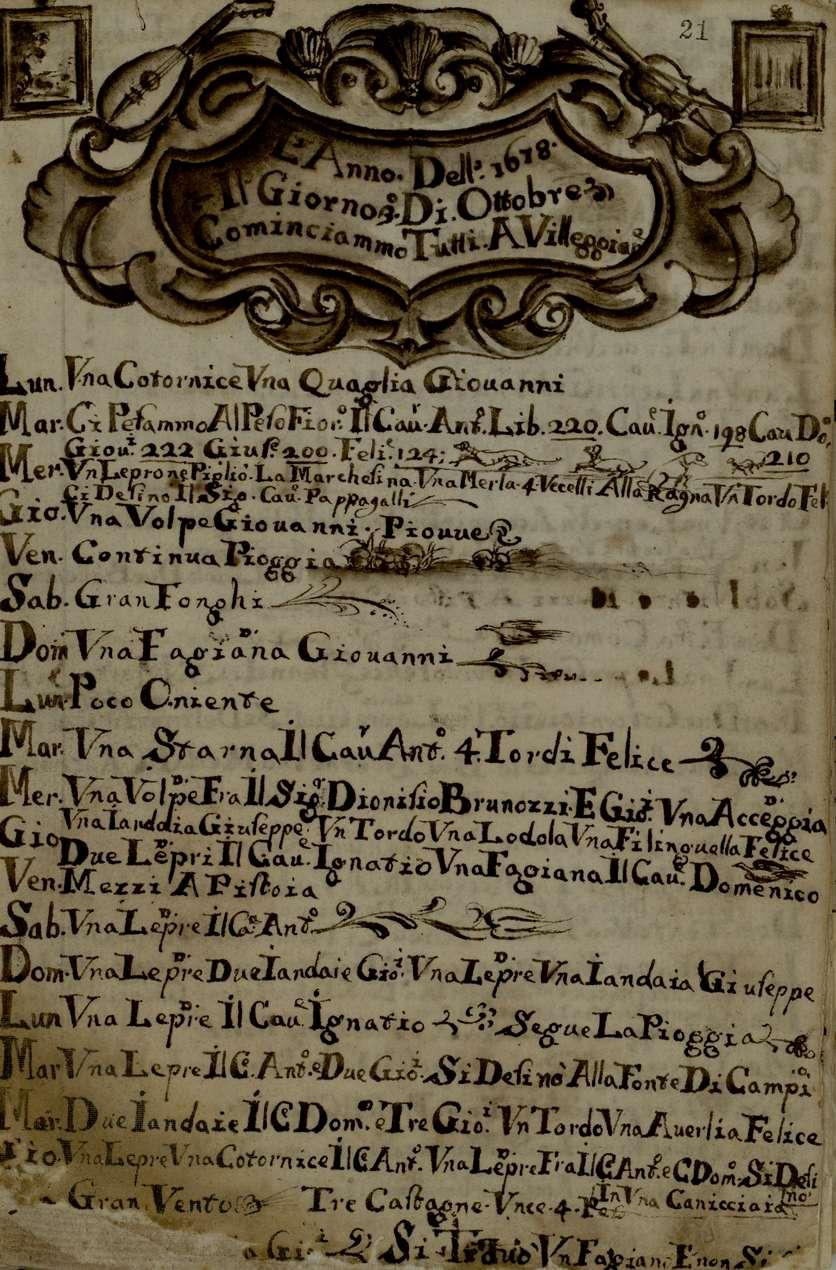 21
L'Anno. Dell. 1678.
Il Giorno 3. Di. Ottobre
Cominciammo Tutti. A Villeggiar
Lun. Vna Cotornice Vna Quaglia Giouanni
Mar. Ci Pesammo Al Peso Fior.o Il Cau.r Ant.o Lib. 220. Cau.e Ign.o 198 Cau Do.
Giou.i 222 Gius.e 200. Feli.e 124. 210
Mer. Vn Leprone Pigliò. La Marchesina. Vna Merla. 4 Vccelli Alla Ragna Vn Tordo Fel
Ci Desinò Il Sig. Cau. Pappagalli
Gio. Vna Volpe Giouanni. Piouue
Ven. Continua Pioggia
Sab. Gran Fonghi
Dom Vna Fagiana Giouanni
Lun. Poco O niente
Mar. Vna Starna Il Cau.r Ant.o 4. Tordi Felice
Mer. Vna Volpe Fra Il Sig.r Dionisio Brunozzi. E Gio.i Vna Acceggia
Vna Iandaia Giuseppe. Vn Tordo Vna Lodola Vna Filinguella Felice
Gio Due Lepri Il Cau.e Ignatio Vna Fagiana Il Cau.e Domenico
Ven. Mezzi A Pistoia
Sab. Vna Lepre Il C. Ant.o
Dom. Vna Lepre Due Iandaie Gio.i Vna Lepre Vna Iandaia Giuseppe
Lun Vna Lepre Il Cau.e Ignatio Segue La Pioggia
Mar Vna Lepre Il C. Ant.o e Due Gio.i Si Desinò Alla Fonte Di Campi
Mer. Due Iandaie Il C Dom.o e Tre Gio.i Vn Tordo Vna Auerlia Felice
Gio. Vna Lepre Vna Cotornice Il C Ant.o Vna Lepre Fra Il C Ant.o e C Dom.o Si Desi
nò
Gran Vento Tre Castagne Vnce 4. In Vna Canicciaia
Si Trouò Vn Fagian E non Si